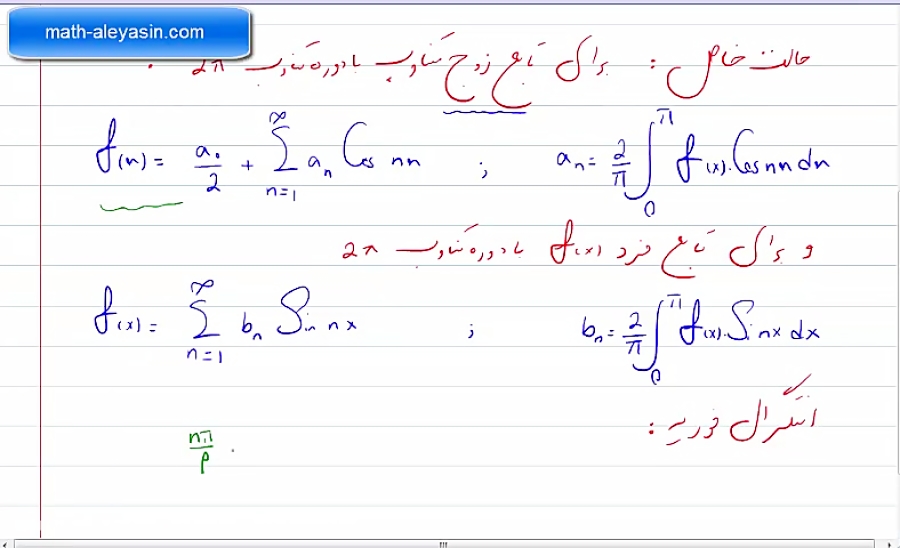 math-aleyasin.com
حالت خاص : برای تابع زوج متناوب با دوره تناوب 2π .
f(x) = a₀/2 + ∑_{n=1}^{∞} aₙ Cos nx ; aₙ = 2/π ∫₀^π f(x). Cos nx dx
و برای تابع فرد f(x) با دوره تناوب 2π
f(x) = ∑_{n=1}^{∞} bₙ Sin nx ; bₙ = 2/π ∫₀^π f(x). Sin nx dx
انتگرال فوریه :
nπ/p .